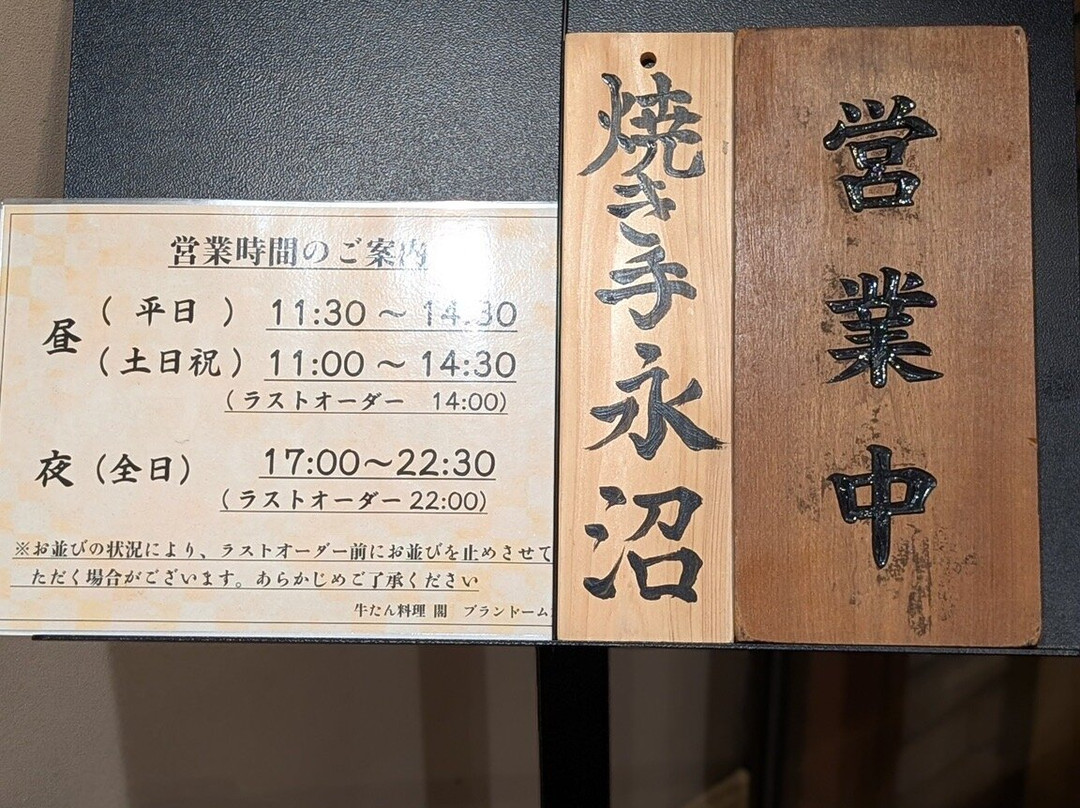 営業時間のご案内
昼 ( 平日 ) 11:30 ～ 14:30
(土日祝) 11:00 ～ 14:30
(ラストオーダー 14:00)
夜 (全日) 17:00～22:30
(ラストオーダー 22:00)
※お並びの状況により、ラストオーダー前にお並びを止めさせて
ただく場合がございます。あらかじめご了承ください
牛たん料理 閣 ブランドーム
焼き手永沼
営業中